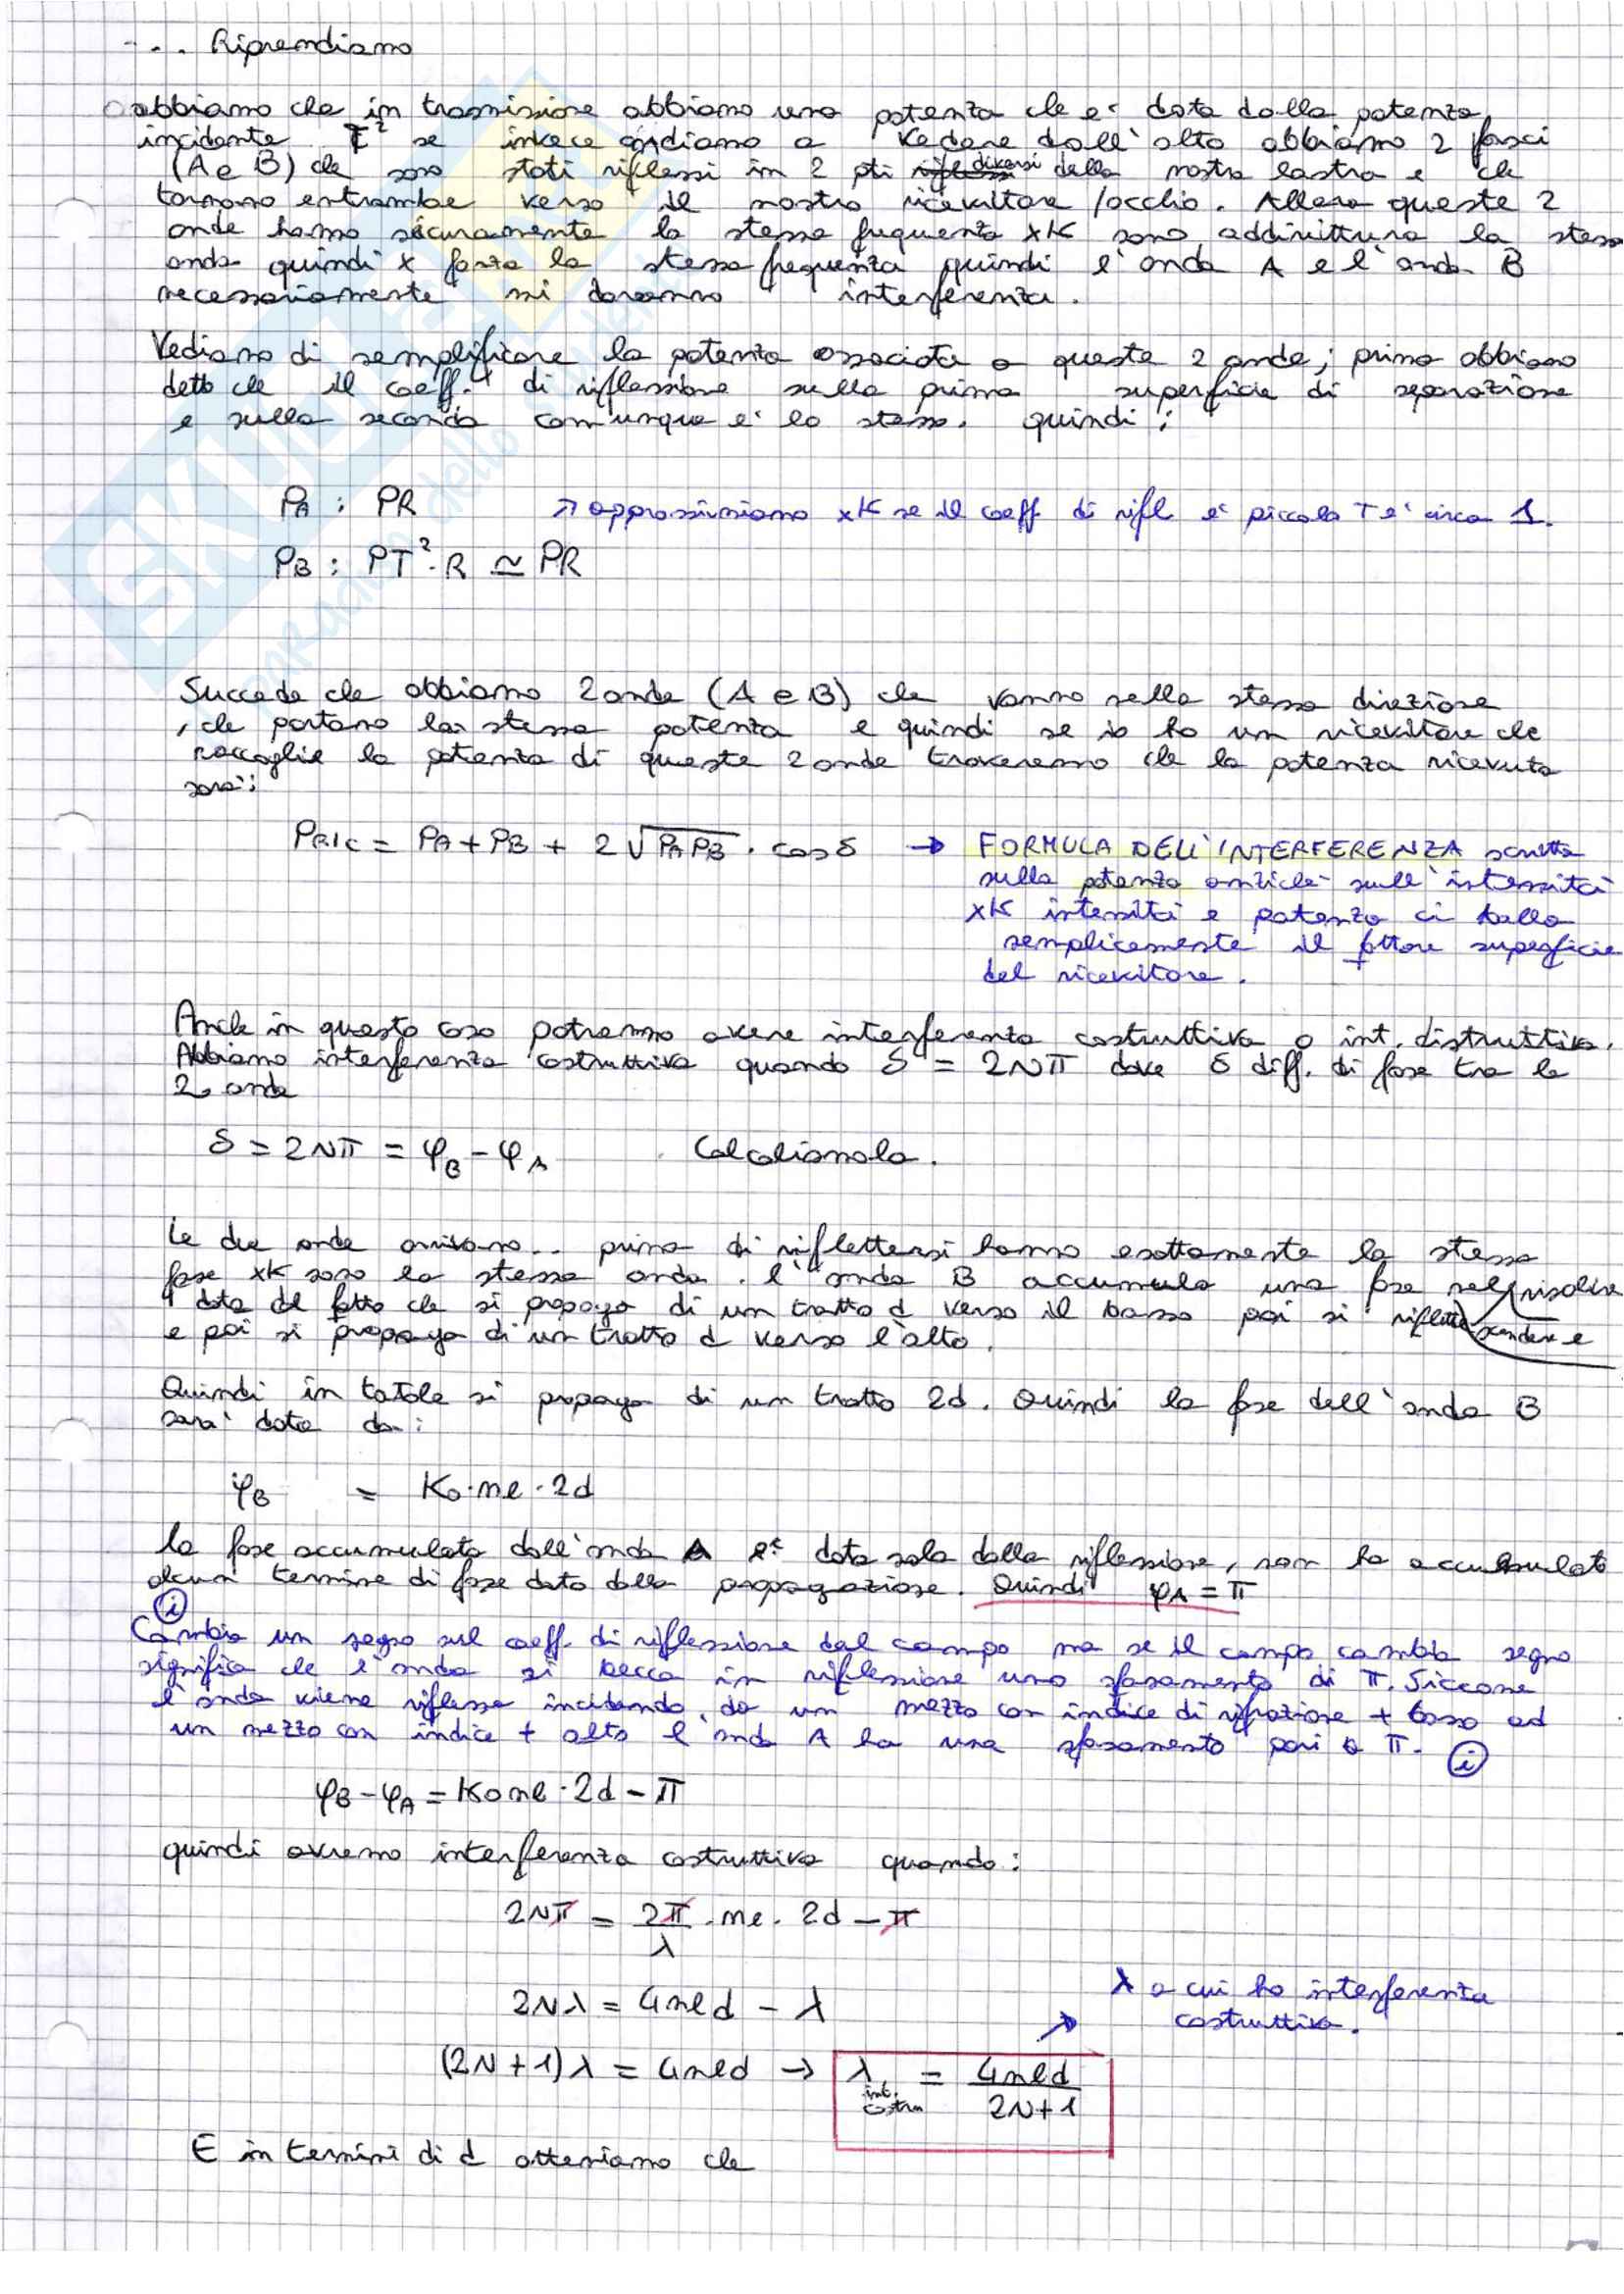 ... Riprendiamo
abbiamo che in trasmissione abbiamo una potenza che e' data dalla potenza
incidente T² se invece andiamo a vedere dall'alto abbiamo 2 fasci
(A e B) che sono stati riflessi in 2 pti diversi della nostra lastra e che
tornano entrambe verso il nostro ricevitore /occhio. Allora queste 2
onde hanno sicuramente la stessa frequenza xK sono addirittura la stessa
onda quindi x forza la stessa frequenza quindi l'onda A e l'onda B
necessariamente mi daranno interferenza.
Vediamo di semplificare la potenza associata a queste 2 onde; prima abbiamo
detto che il coeff. di riflessione sulla prima superficie di separazione
e sulla seconda comunque e' lo stesso. quindi:
PA : PR
↗ approssimiamo xK se il coeff di rifl e' piccolo T e' circa 1.
PB : PT²·R ≃ PR
Succede che abbiamo 2 onde (A e B) che vanno nella stessa direzione
, che portano la stessa potenza e quindi se io ho un ricevitore che
raccoglie la potenza di queste 2 onde troveremo che la potenza ricevuta
sara':
PRIC = PA + PB + 2 √PA PB · cos δ → FORMULA DELL'INTERFERENZA scritta
sulla potenza anziché sull'intensità
xK intensità e potenza ci balla
semplicemente il fattore superficie
del ricevitore.
Anche in questo caso potremmo avere interferenza costruttiva o int. distruttiva.
Abbiamo interferenza costruttiva quando δ = 2Nπ dove δ diff. di fase tra le
2 onde
δ = 2Nπ = φB - φA Calcoliamola.
Le due onde arrivano.. prima di riflettersi hanno esattamente la stessa
fase xK sono la stessa onda. l'onda B accumula una fase nel risalire
data dal fatto che si propaga di un tratto d verso il basso poi si riflette scendere e
e poi si propaga di un tratto d verso l'alto.
Quindi in totale si propaga di un tratto 2d. Quindi la fase dell'onda B
sara' data da:
φB = K0·ne·2d
la fase accumulata dall'onda A e' data solo dalla riflessione, non ha accumulato
alcun termine di fase dato dalla propagazione. Quindi φA = π
(i)
Cambia un segno sul coeff. di riflessione del campo ma se il campo cambia segno
significa che l'onda si becca in riflessione uno sfasamento di π. Siccome
l'onda viene riflessa incidendo da un mezzo con indice di rifrazione + basso ad
un mezzo con indice + alto l'onda A ha uno sfasamento pari a π. (i)
φB - φA = K0 ne · 2d - π
quindi avremo interferenza costruttiva quando:
2Nπ = 2π/λ · ne · 2d - π
2Nλ = 4ned - λ
λ a cui ho interferenza
costruttiva.
(2N + 1) λ = 4ned → λ int. costru = 4ned / 2N+1
E in termini di d otteniamo che